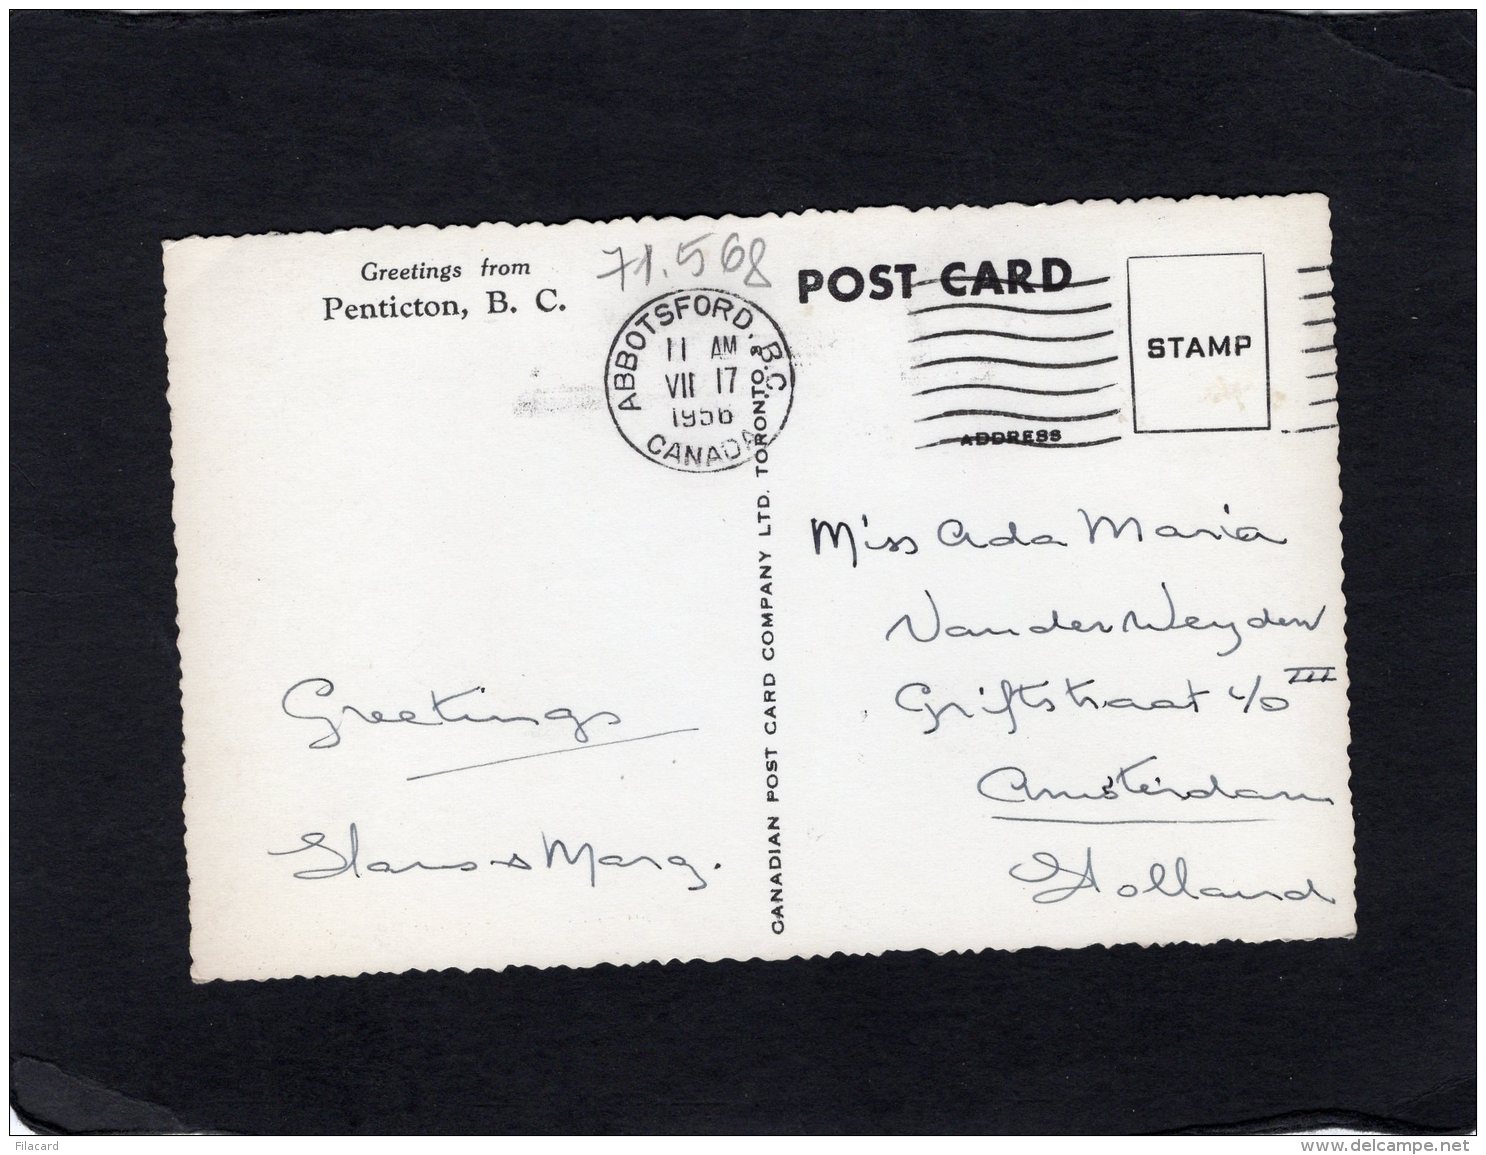 Greetings from
Penticton, B. C.
71.568
ABBOTSFORD, B.C.
11 AM
VII 17
1956
CANADA
POST CARD
STAMP
ADDRESS
CANADIAN POST CARD COMPANY LTD. TORONTO, 8
Miss Ada Maria
Van der Weyden
Griftstraat 4/0 III
Amsterdam
Holland
Greetings
Hans & Marg.
Filacard
delcampe.net